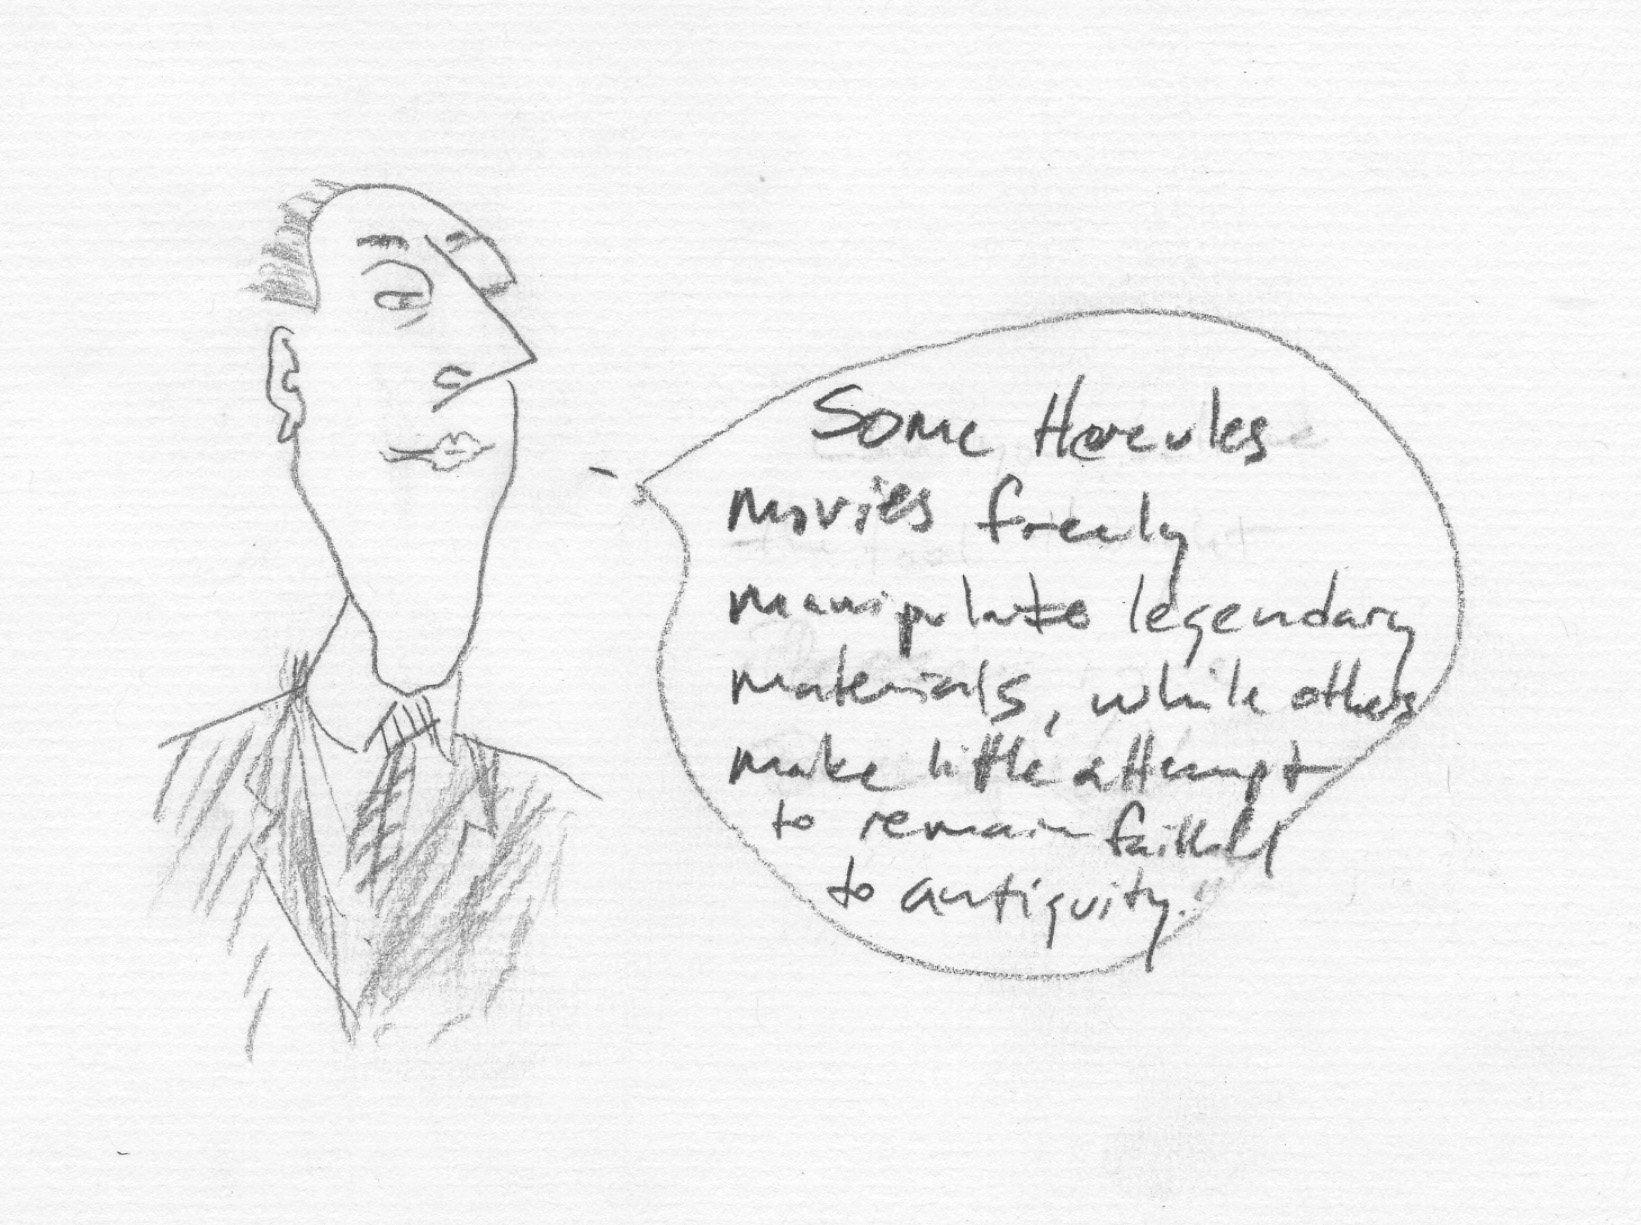 Some Hercules
movies freely
manipulate legendary
materials, while others
make little attempt
to remain faithful
to antiquity.